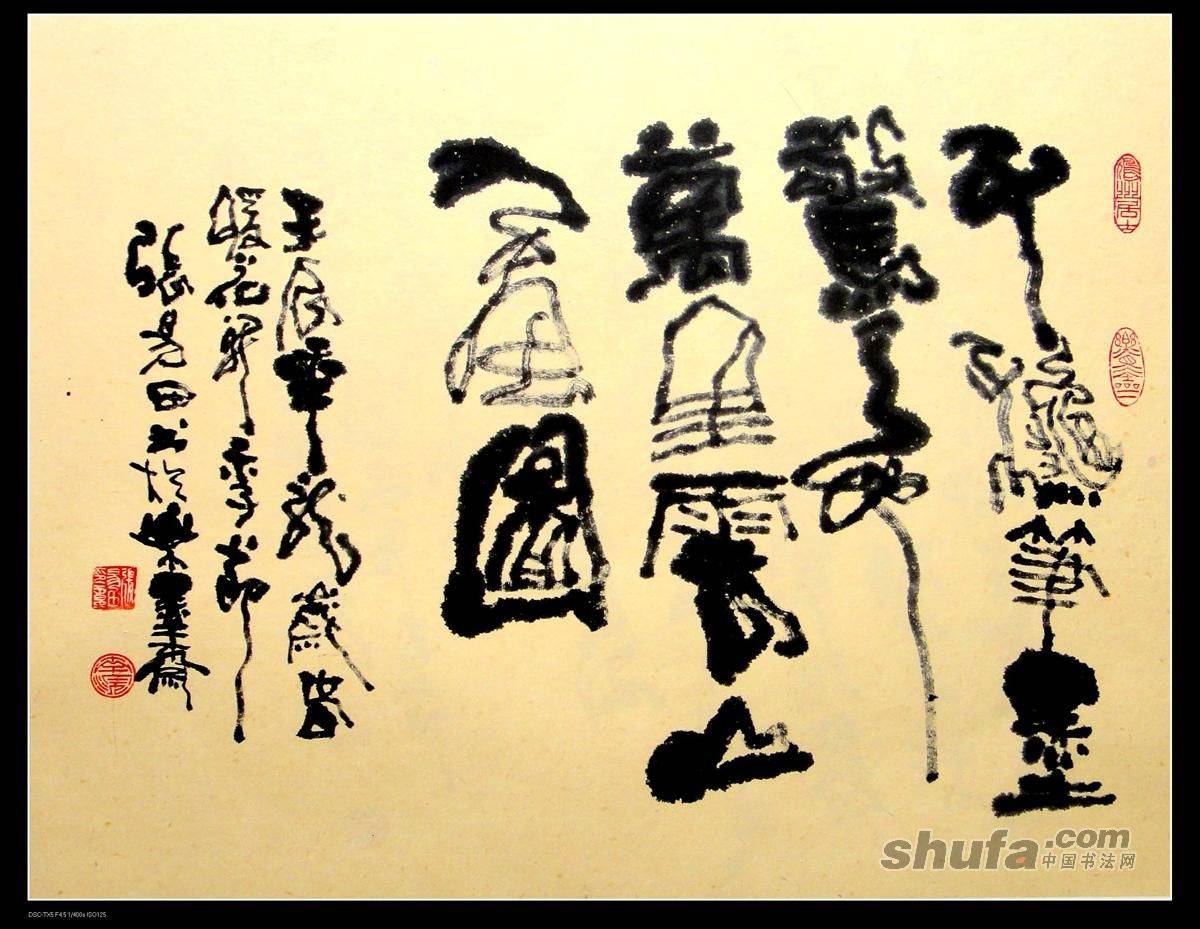 千龝筆墨
驚天地
萬里雲山
入畫圖
壬辰年龍歲春
暖花開季節
張田書於樂墨齋
shufa.com
中国书法网
DSC-TX5 F4.5 1/400s ISO125